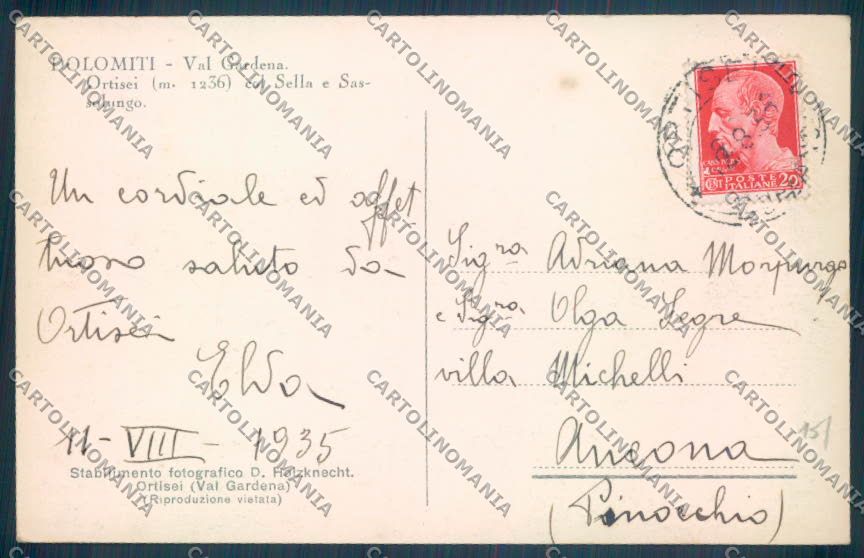 DOLOMITI - Val Gardena.
Ortisei (m. 1236) col Sella e Sas-
solungo.
Un cordiale ed affet
tuoso saluto da
Ortisei
Elda
11 - VIII - 1935
Stabilimento fotografico D. Holzknecht.
Ortisei (Val Gardena)
(Riproduzione vietata)
POSTE
ITALIANE
CENT 20
Sig.ra Adriana Morpurgo
e Sig.ra Olga Segre
villa Michelli
Ancona
(Pinocchio)
15/
CARTOLINOMANIA